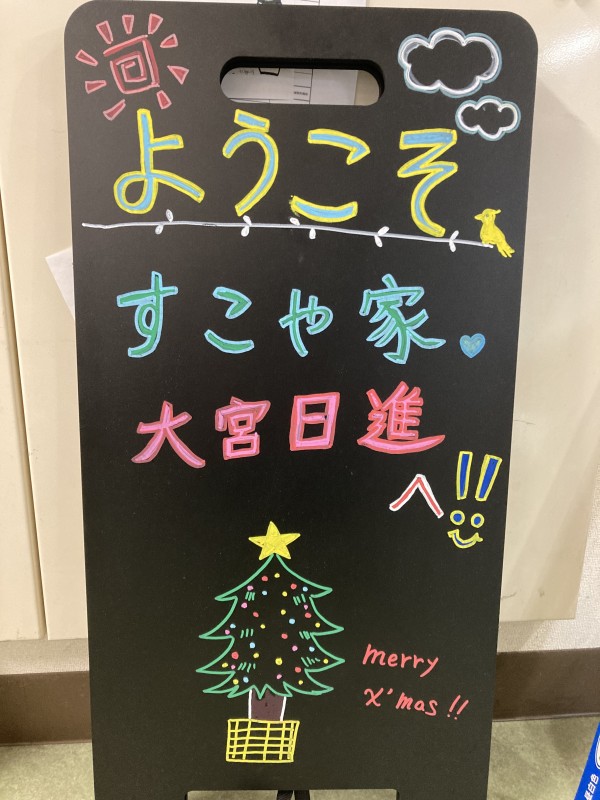 ようこそ
すこや家
大宮日進
へ!!
merry
X'mas!!